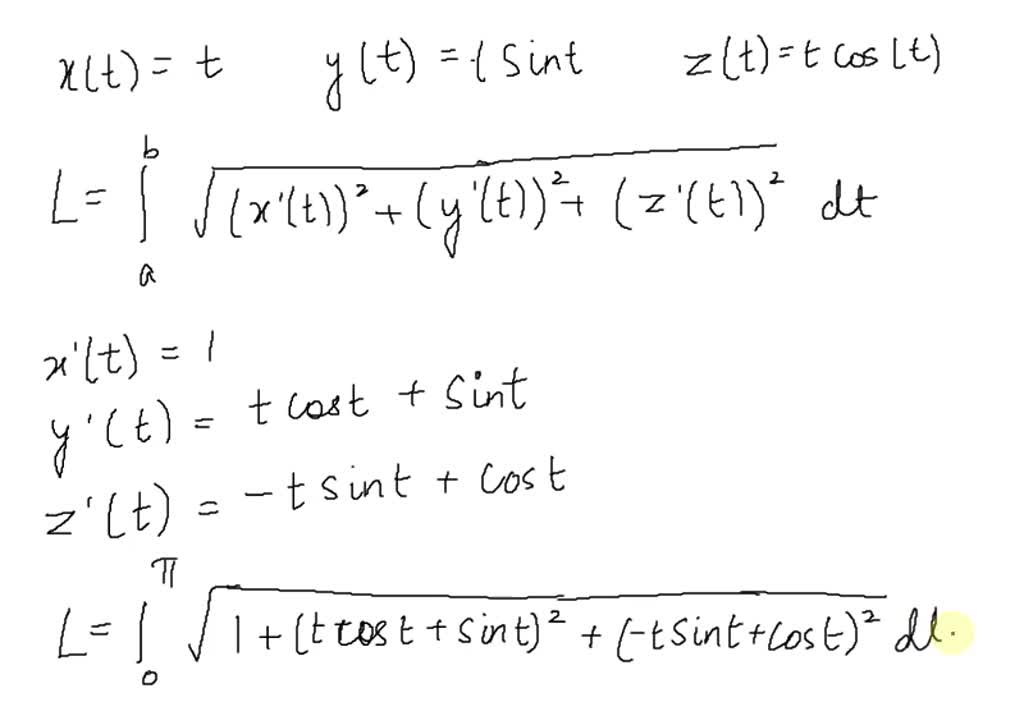 x(t) = t y(t) = t sint z(t) = t cos(t)
L = ∫_a^b √((x'(t))² + (y'(t))² + (z'(t))²) dt
x'(t) = 1
y'(t) = t cost + sint
z'(t) = -t sint + cost
L = ∫_0^π √(1 + (t cost + sint)² + (-t sint + cost)²) dt.